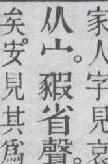 家人字見
从宀。豭省聲。
矣。安見其爲